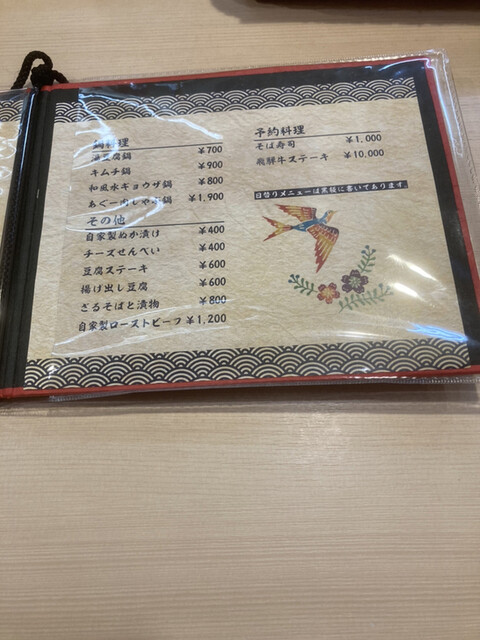 鍋料理
湯豆腐鍋 ¥700
キムチ鍋 ¥900
和風水ギョウザ鍋 ¥800
あぐー肉しゃぶ鍋 ¥1,900
その他
自家製ぬか漬け ¥400
チーズせんべい ¥400
豆腐ステーキ ¥600
揚げ出し豆腐 ¥600
ざるそばと漬物 ¥800
自家製ローストビーフ ¥1,200
予約料理
そば寿司 ¥1,000
飛騨牛ステーキ ¥10,000
日替りメニューは黒板に書いてあります。